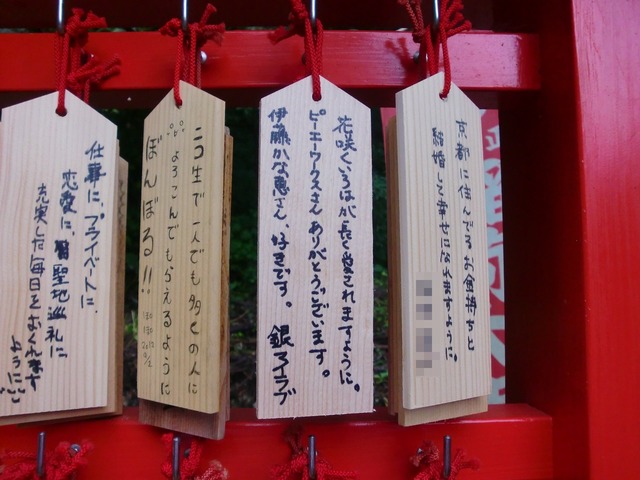 仕事に、プライベートに、
恋愛に、聖地巡礼に、
充実した毎日をむくれます
ように
ニコ生で一人でも多くの人に
よろこんでもらえるように
ぼんぼる!!
花咲くいろはが長く愛されますように。
ピーエーワークスさんありがとうございます。
伊藤かな恵さん、好きです。
銀
イラブ
京都に住んでるお金持ちと
結婚して幸せになれますように。